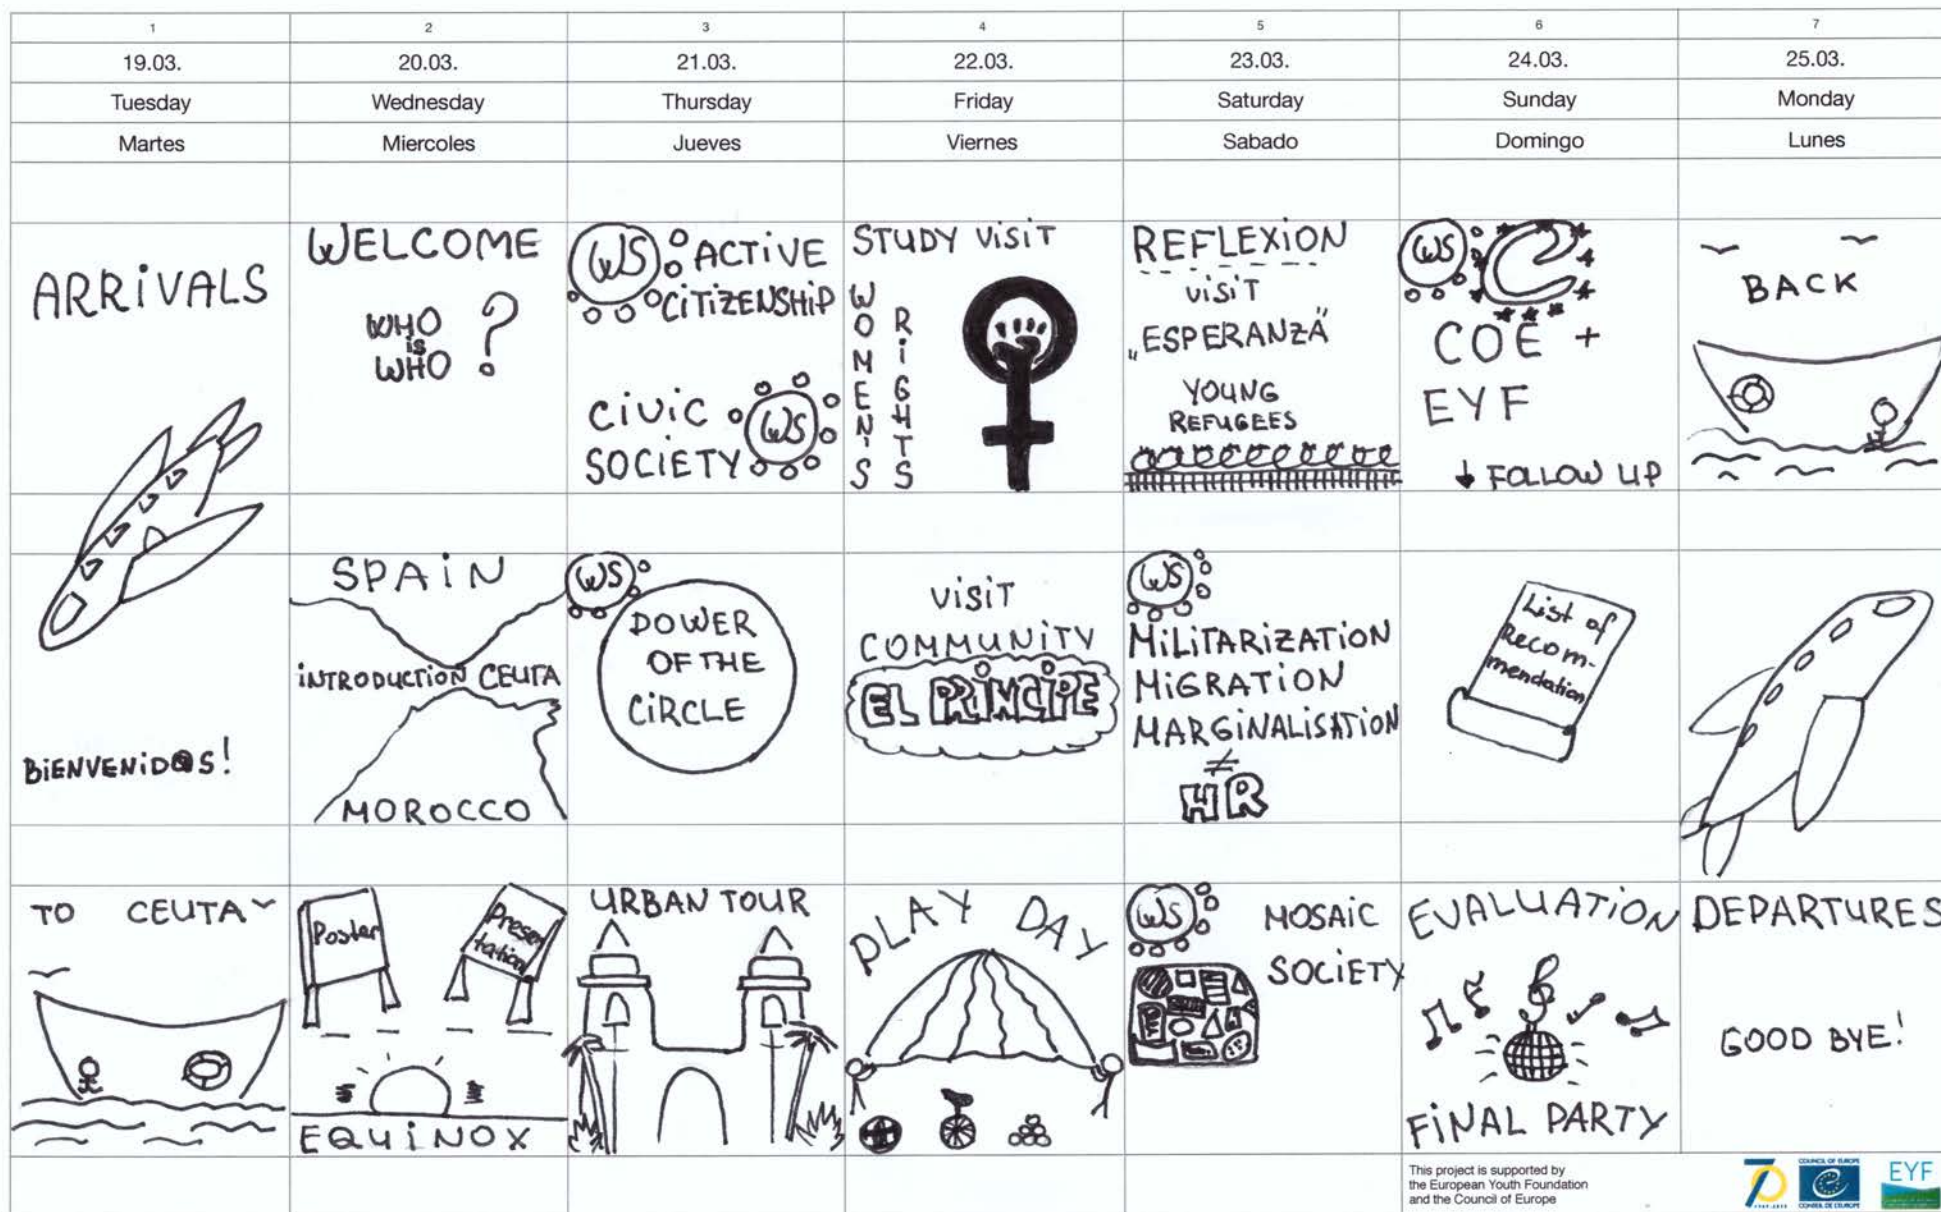 1 2 3 4 5 6 7
19.03. 20.03. 21.03. 22.03. 23.03. 24.03. 25.03.
Tuesday Wednesday Thursday Friday Saturday Sunday Monday
Martes Miercoles Jueves Viernes Sabado Domingo Lunes
ARRiVALS
WELCOME
WHO
is
WHO
?
WS ACTiVE
CiTiZENSHiP
CiViC WS
SOCiETY
STUDY ViSiT
WOMEN'S
RiGHTS
REFLEXiON
ViSiT
„ESPERANZA"
YOUNG
REFUGEES
WS
COE +
EYF
↓ FOLLOW UP
BACK
BiENVENiD@S!
SPAiN
iNTRODUCTiON CEUTA
MOROCCO
WS
POWER
OF THE
CiRCLE
ViSiT
COMMUNiTY
EL PRiNCiPE
WS
MiLiTARiZATiON
MiGRATiON
MARGiNALiSATiON
≠
HR
List of
Recom-
mendation
TO CEUTA
Poster
Presen
tation
EQUiNOX
URBAN TOUR
PLAY DAY
WS MOSAiC
SOCiETY
EVALUATiON
FiNAL PARTY
DEPARTURES
GOOD BYE!
This project is supported by
the European Youth Foundation
and the Council of Europe
70
COUNCIL OF EUROPE
CONSEIL DE L'EUROPE
EYF